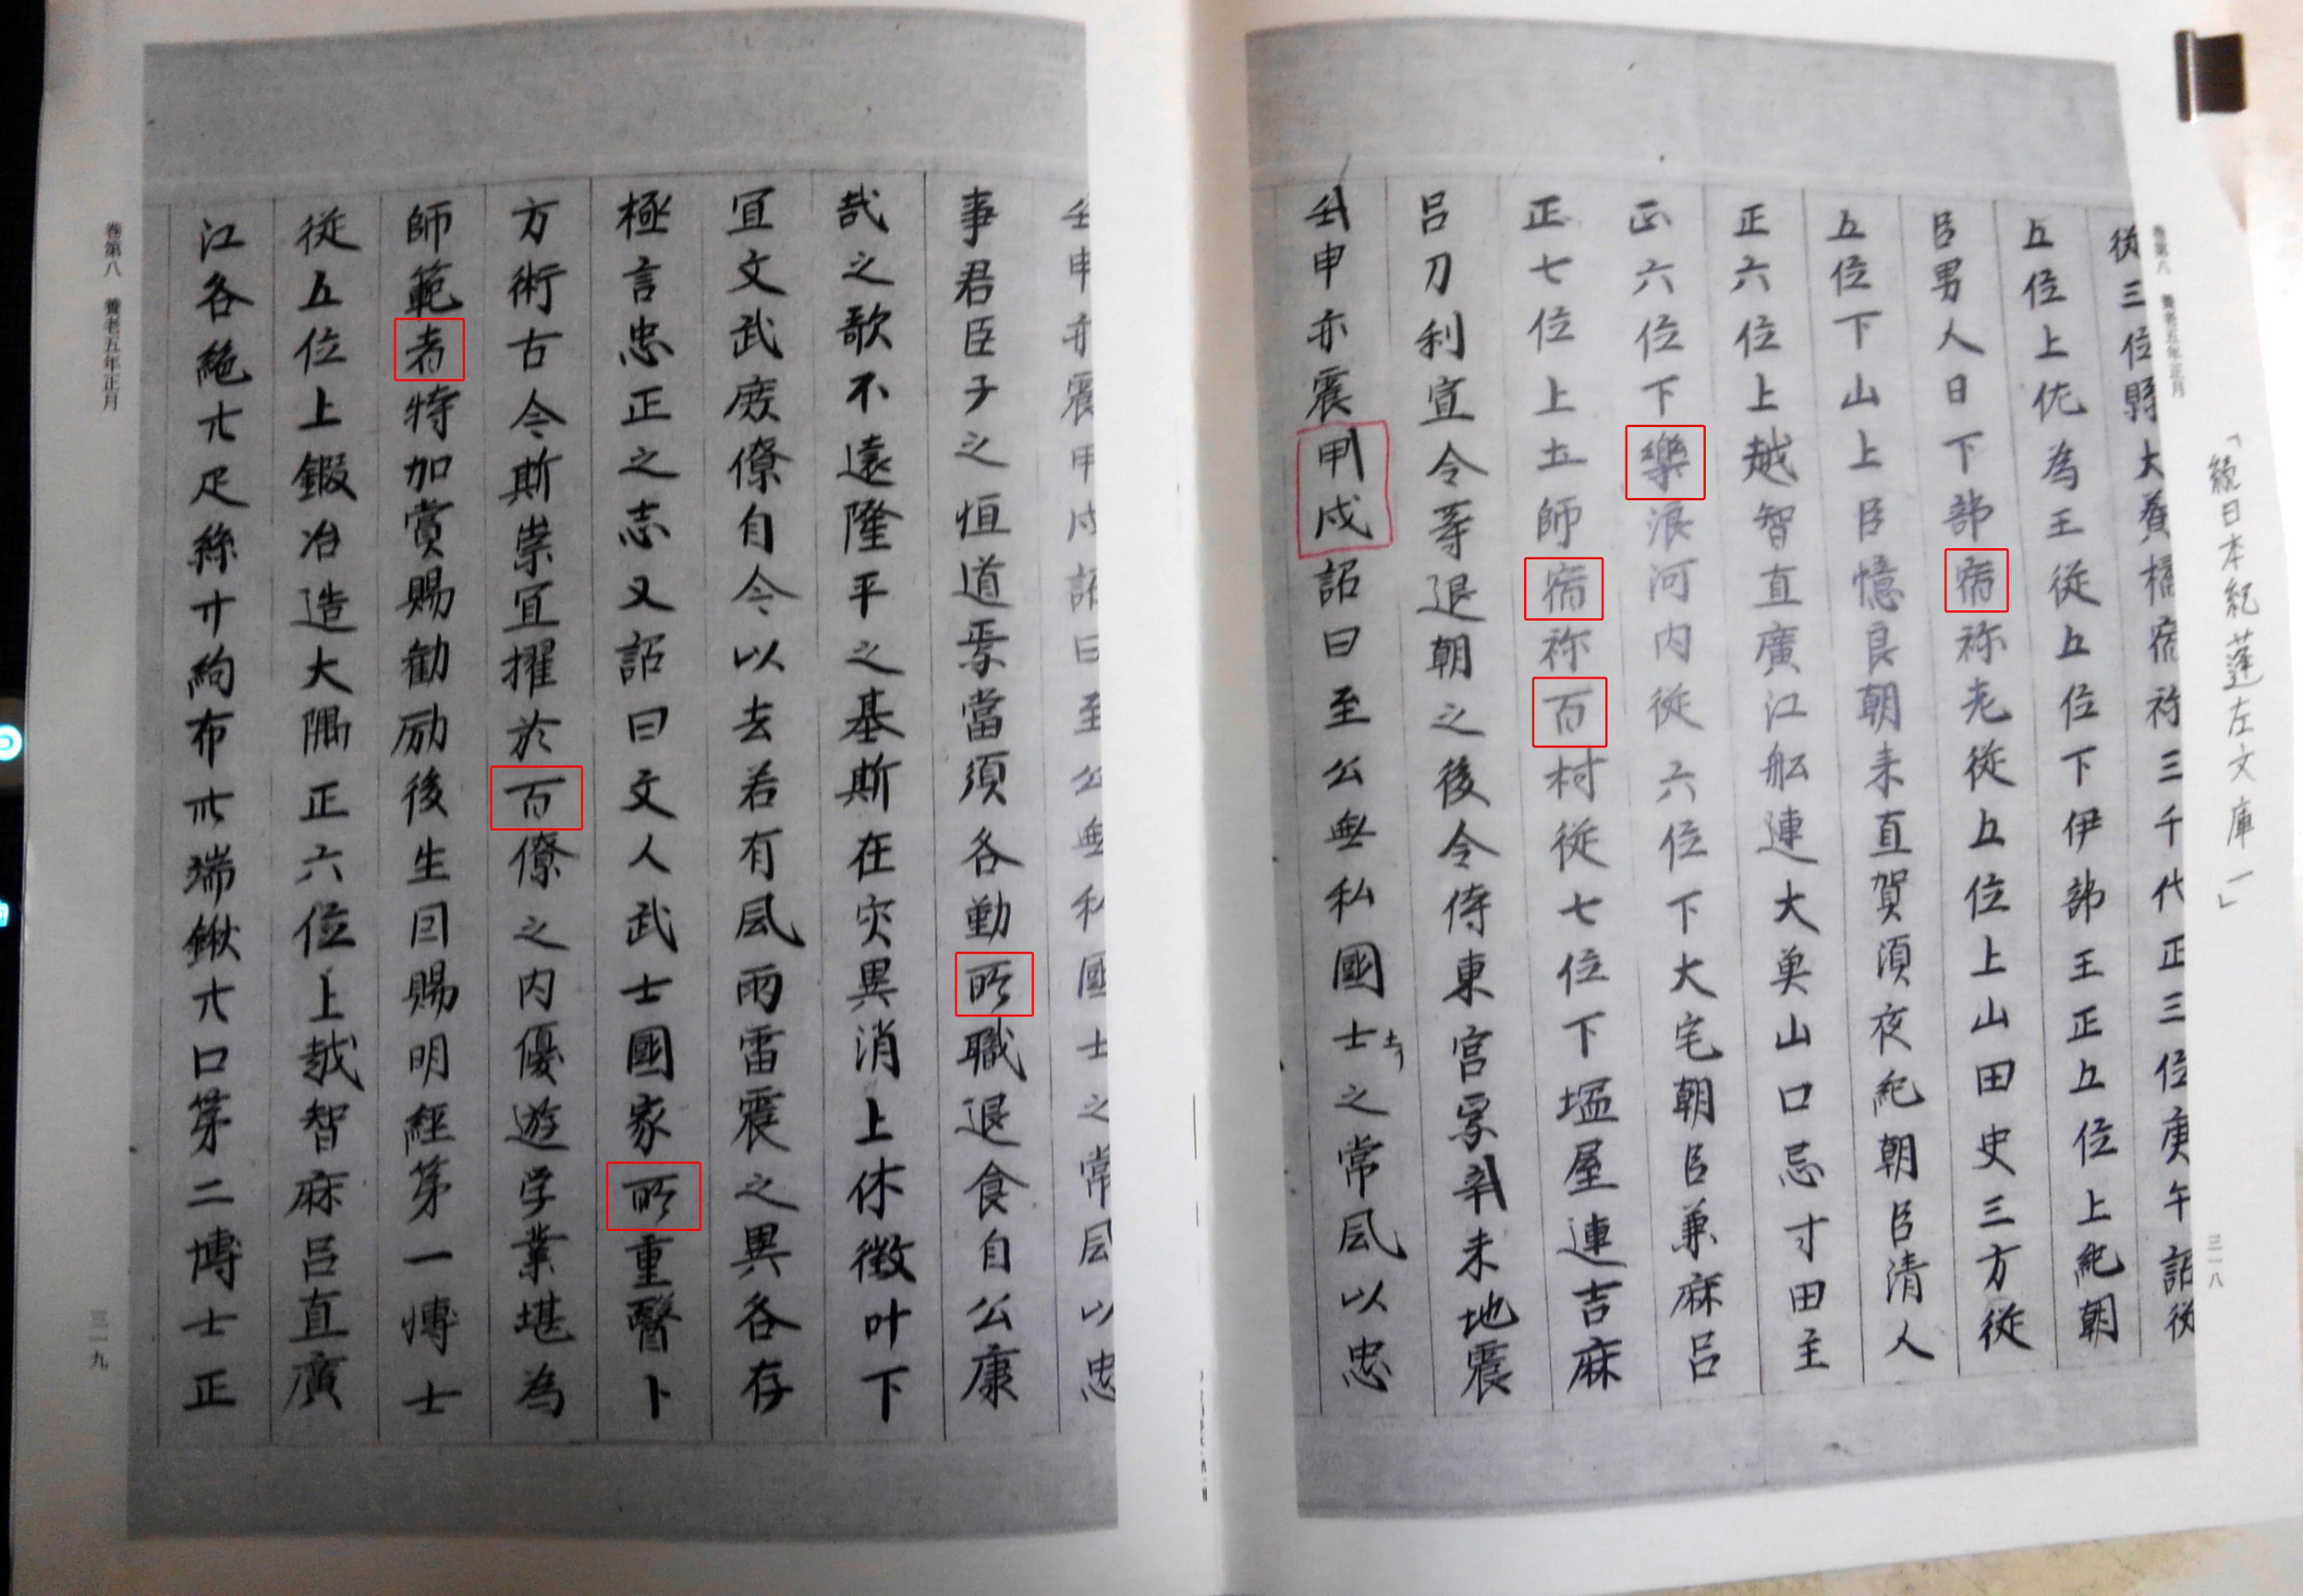 「続日本紀蓬左文庫一」
卷第八　養老五年正月
三一八
從三位縣大養橘宿祢三千代正三位庚午詔從
五位上佐為王從五位下伊部王正五位上紀朝
臣男人日下部宿祢老從五位上山田史三方從
五位下山上臣憶良朝来直賀須夜紀朝臣清人
正六位上越智直廣江船連大魚山口忌寸田主
正六位下樂浪河内從六位下大宅朝臣兼麻呂
正七位上土師宿祢百村從七位下塩屋連吉麻
呂刀利宣令等退朝之後令侍東宮焉辛未地震
壬申亦震甲戌詔曰至公無私國士之常風以忠
壬申亦震甲戌詔曰至公無私國士之常風以忠
事君臣子之恒道焉當須各勤所職退食自公康
哉之歌不遠隆平之基斯在灾異消上休徵叶下
宜文武庶僚自今以去若有風雨雷震之異各存
極言忠正之志又詔曰文人武士國家所重醫卜
方術古今斯崇宜擢於百僚之内優遊学業堪為
師範者特加賞賜勸励後生因賜明經第一博士
從五位上鍛冶造大隅正六位上越智麻呂直廣
江各絁廿疋絲廿絇布卅端鍬廿口第二博士正
卷第八　養老五年正月
三一九